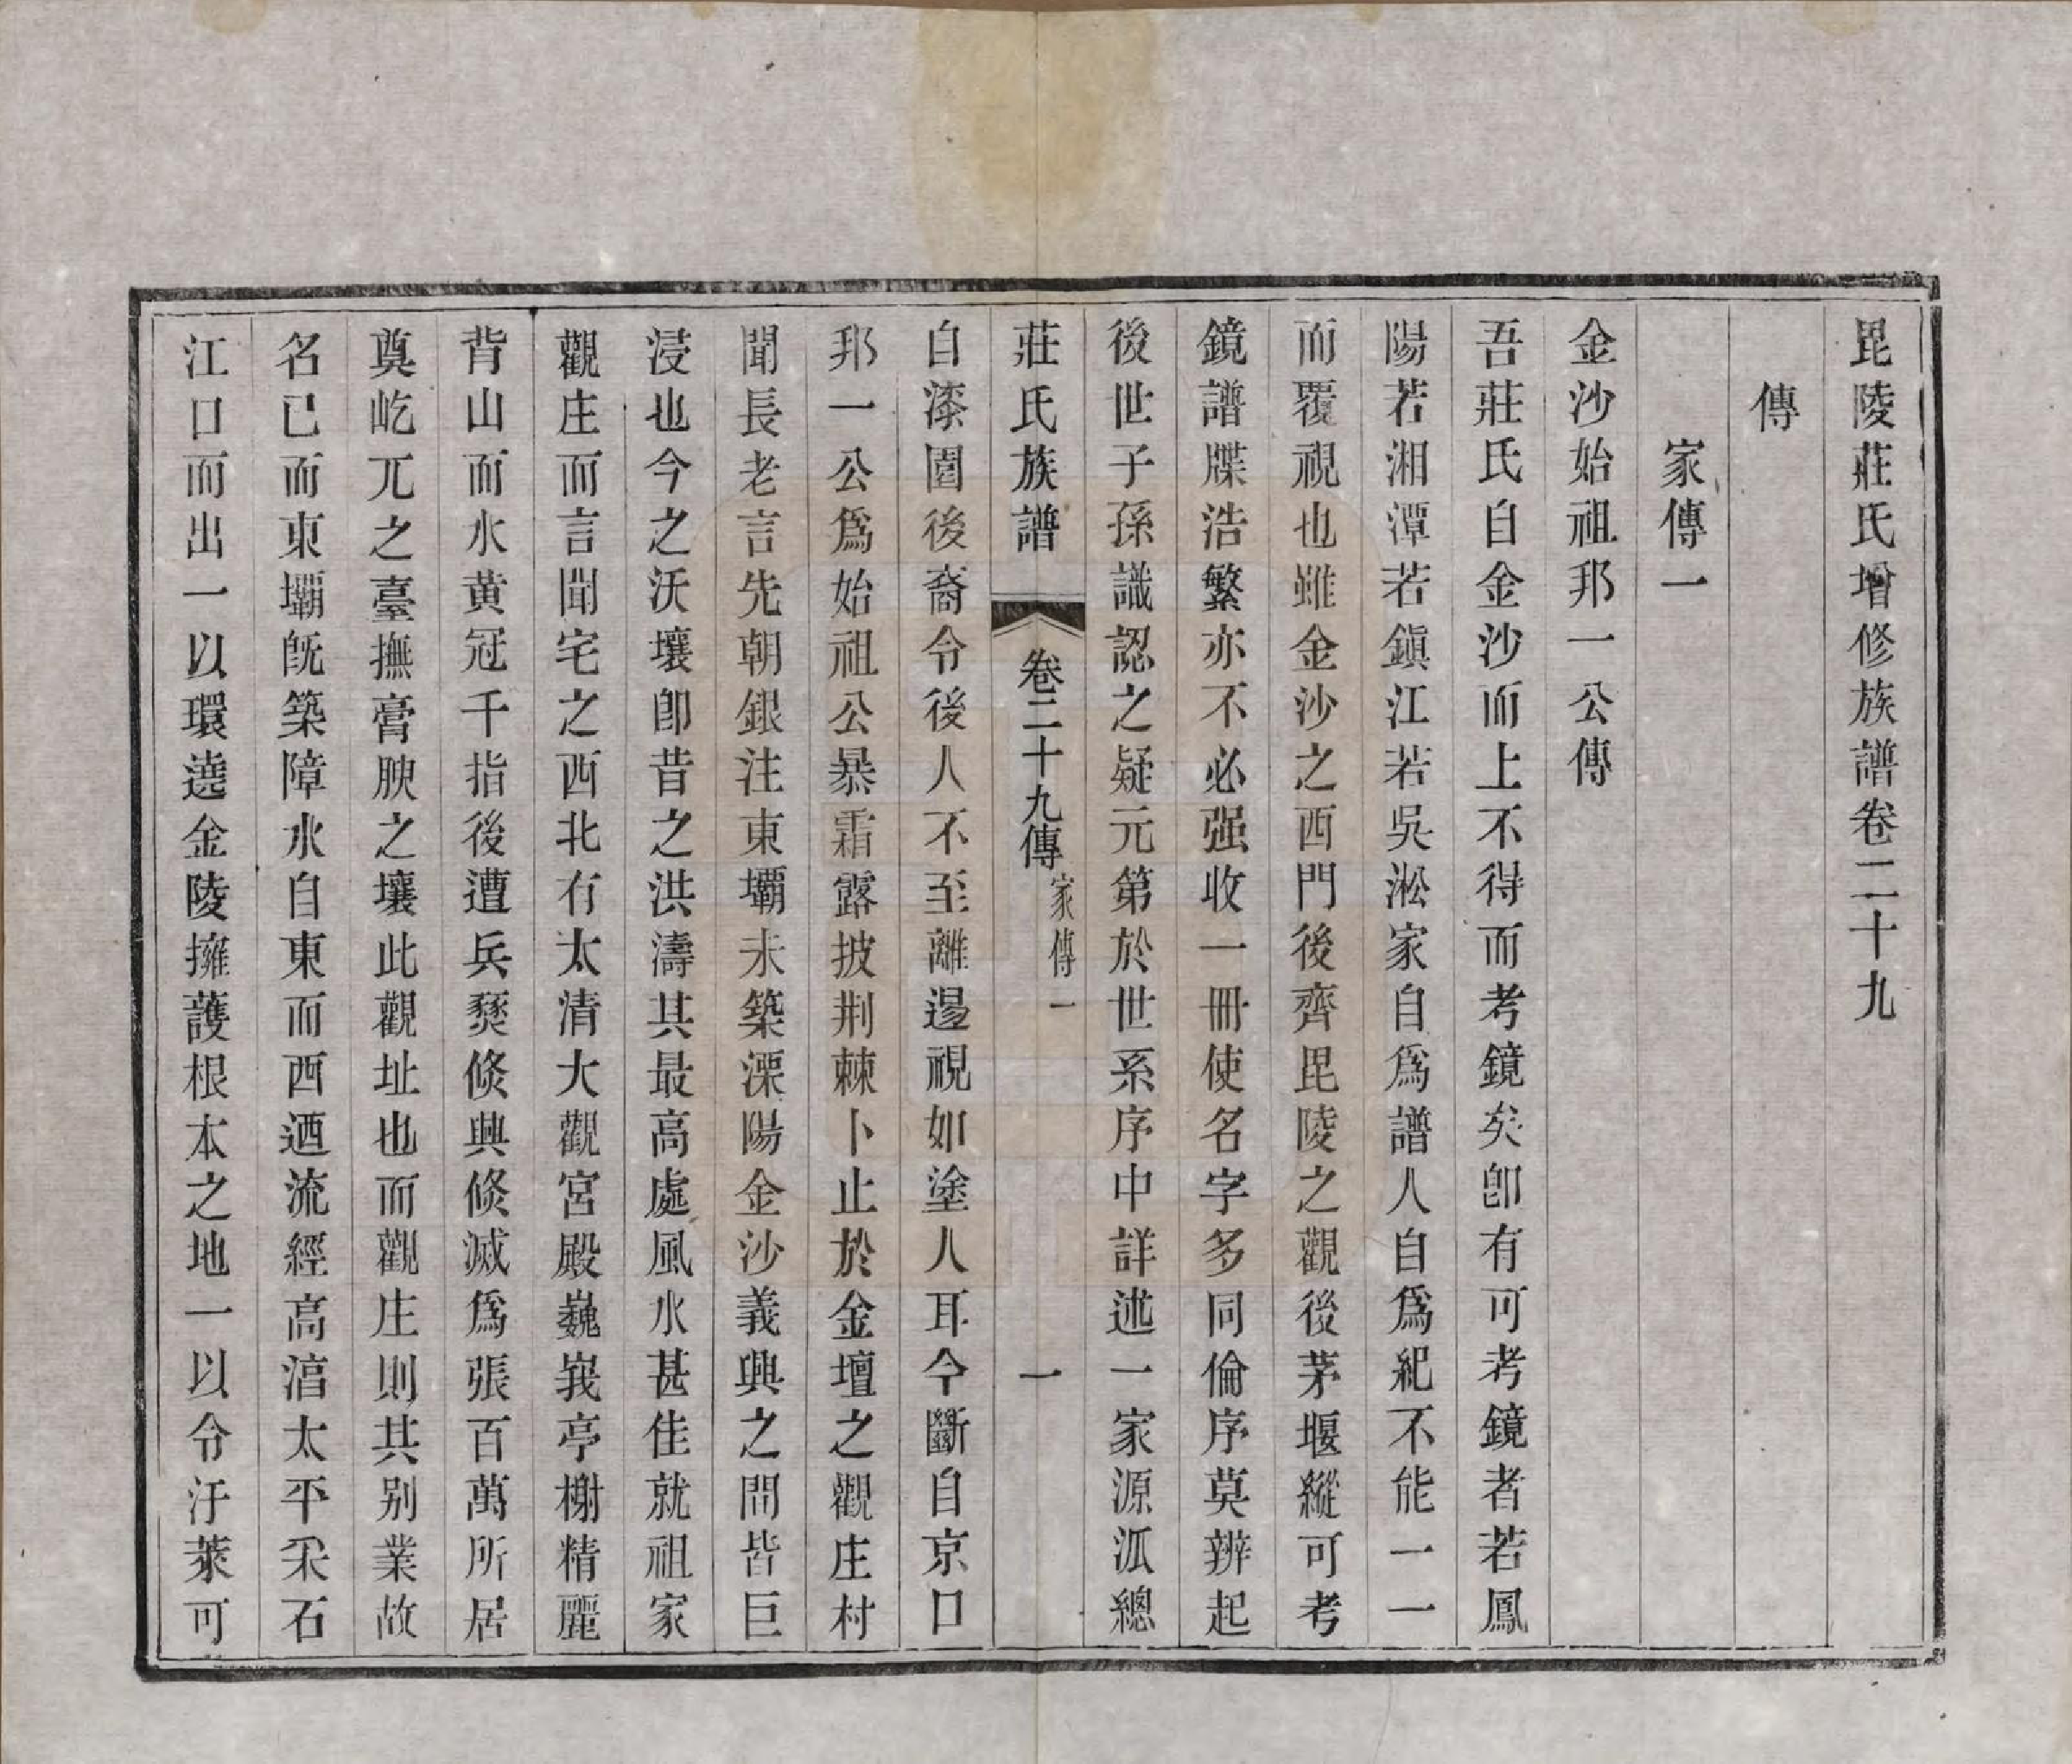 毘陵莊氏增修族譜卷二十九
傳
家傳一
金沙始祖邦一公傳
吾莊氏自金沙而上不得而考鏡矣卽有可考鏡者若鳳
陽若湘潭若鎭江若吳淞家自爲譜人自爲紀不能一一
而覆視也雖金沙之西門後齊毘陵之觀後茅堰縱可考
鏡譜牒浩繁亦不必强收一冊使名字多同倫序莫辨起
後世子孫識認之疑元第於世系序中詳述一家源派總
莊氏族譜 卷二十九傳 家傳一 一
自漆園後裔令後人不至離遏視如塗人耳今斷自京口
邦一公爲始祖公暴霜露披荆棘卜止於金壇之觀庄村
聞長老言先朝銀注東壩未築溧陽金沙義興之間皆巨
浸也今之沃壤卽昔之洪濤其最高處風水甚佳就祖家
觀庄而言聞宅之西北有太清大觀宮殿巍峩亭榭精麗
背山而水黃冠千指後遭兵燹倐興倐滅爲張百萬所居
奠屹兀之臺撫膏腴之壤此觀址也而觀庄則其别業故
名已而東壩旣築障水自東而西迺流經高湻太平采石
江口而出一以環遶金陵擁護根本之地一以令汙萊可